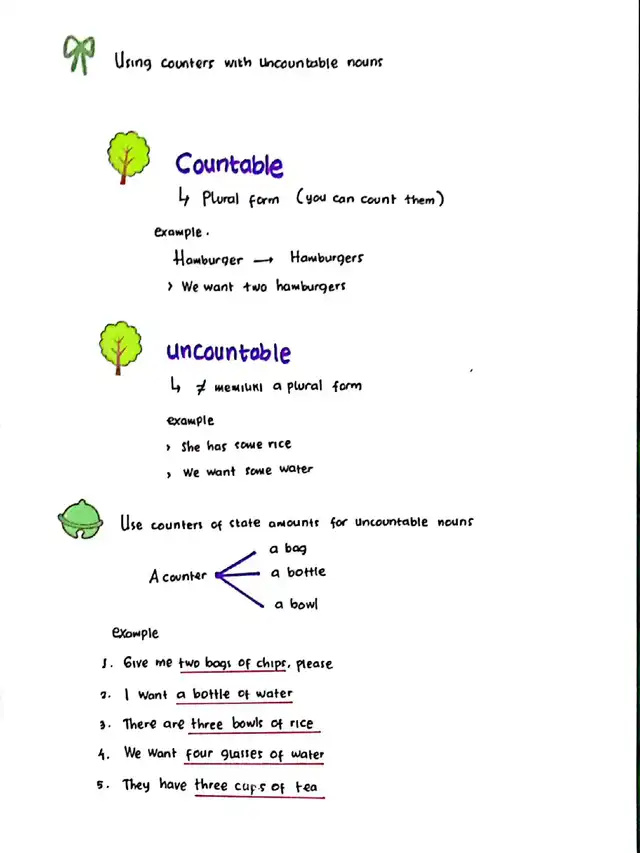 Using counters with uncountable nouns
Countable
↳ Plural form (you can count them)
example.
Hamburger → Hamburgers
> We want two hamburgers
uncountable
↳ ≠ memiliki a plural form
example
> She has some rice
> We want some water
Use counters of state amounts for uncountable nouns
a bag
A counter
a bottle
a bowl
example
1. Give me two bags of chips, please
2. I want a bottle of water
3. There are three bowls of rice
4. We want four glasses of water
5. They have three cups of tea